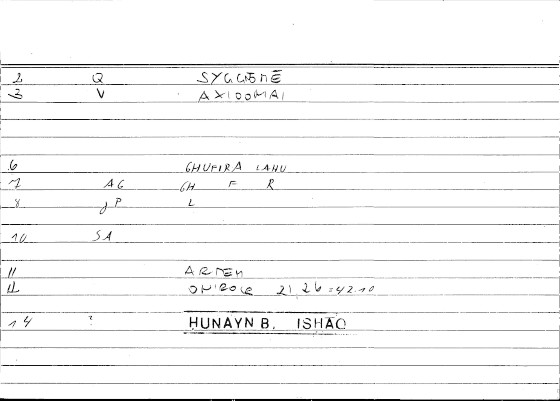 2 Q SYGGNŌMĒ
3 V AXIOOMAI
6 GHUFIRA LAHU
7 AG GH F R
8 JP L
10 SA
11 ARTEM
12 ONIROCR 2126=42.10
14 ? HUNAYN B. ISHAQ